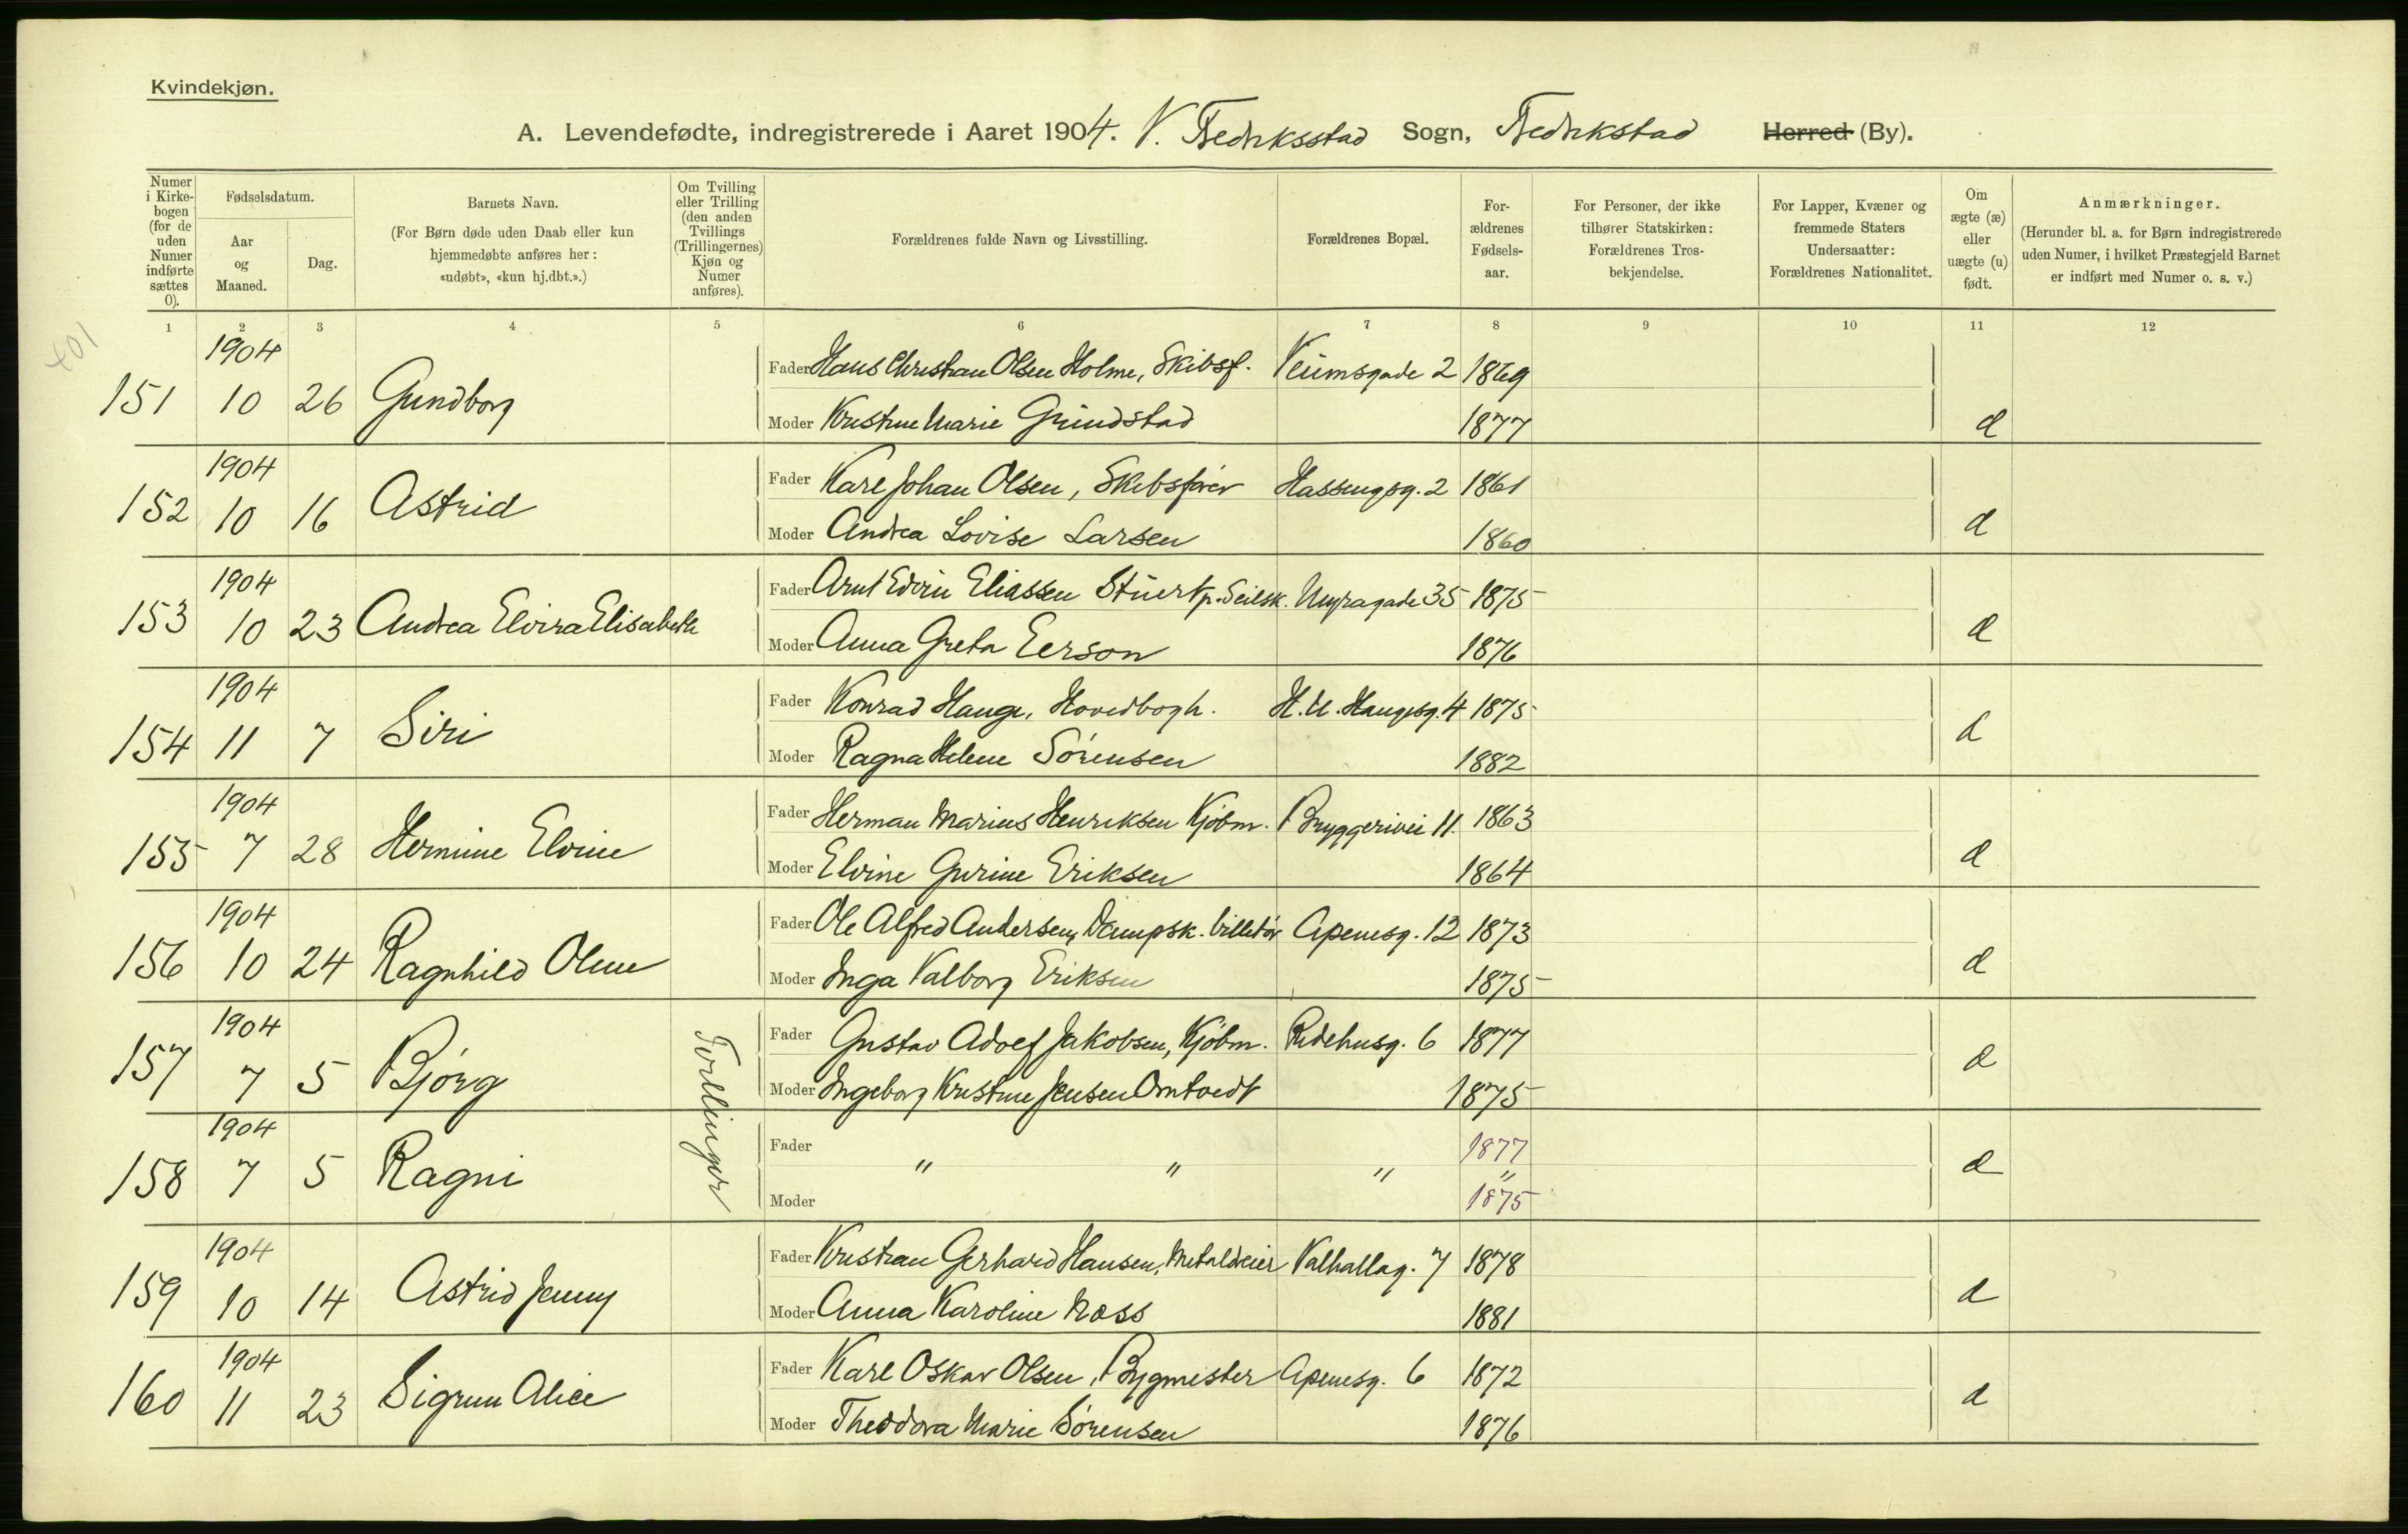 Kvindekjøn.
A. Levendefødte, indregistrerede i Aaret 1904. V. Fredriksstad Sogn, Fredrikstad Herred (By).
Numer i Kirkebogen (for de uden Numer indførte sættes 0).
Fødselsdatum.
Aar og Maaned.
Dag.
Barnets Navn.
(For Børn døde uden Daab eller kun hjemmedøbte anføres her: «udøbt», «kun hj.dbt.».)
Om Tvilling eller Trilling (den anden Tvillings (Trillingernes) Kjøn og Numer anføres).
Forældrenes fulde Navn og Livsstilling.
Forældrenes Bopæl.
Forældrenes Fødselsaar.
For Personer, der ikke tilhører Statskirken: Forældrenes Trosbekjendelse.
For Lapper, Kvæner og fremmede Staters Undersaatter: Forældrenes Nationalitet.
Om ægte (æ) eller uægte (u) født.
Anmærkninger.
(Herunder bl. a. for Børn indregistrerede uden Numer, i hvilket Præstegjeld Barnet er indført med Numer o. s. v.)
1 2 3 4 5 6 7 8 9 10 11 12
107
1904
151 10 26 Gundborg
Fader Hans Christian Olsen Holme, Skibsf. Veumsgade 2 1869
Moder Kristine Marie Grimdstad 1877 æ
1904
152 10 16 Astrid
Fader Karl Johan Olsen, Skibsfører Hassingsg. 2 1861
Moder Andrea Lovise Larsen 1860 æ
1904
153 10 23 Andrea Elvira Elisabeth
Fader Arnt Edvin Eliassen Stuert p. Seilsk. Myragade 35 1875
Moder Anna Greta Eerson 1876 æ
1904
154 11 7 Siri
Fader Konrad Hauge, Hovedbogh. H. N. Haugesg. 4 1875
Moder Ragna Helene Sørensen 1882 æ
1904
155 7 28 Hermine Elvine
Fader Herman Marius Henriksen Kjøbm. Bryggerivei 11. 1863
Moder Elvine Gurine Eriksen 1864 æ
1904
156 10 24 Ragnhild Oline
Fader Ole Alfred Andersen, Dampsk. billetør Apenesg. 12 1873
Moder Inga Valborg Eriksen 1875 æ
1904
157 7 5 Bjørg
Tvillinger
Fader Gustav Adolf Jakobsen, Kjøbm. Ridehusg. 6 1877
Moder Ingeborg Kristine Jensen Omtvedt 1875 æ
1904
158 7 5 Ragni
Fader 1877
" " " "
Moder 1875 æ
1904
159 10 14 Astrid Jenny
Fader Kristian Gerhard Hansen, Metaldreier Valhallag. 7 1878
Moder Anna Karoline Næss 1881 æ
1904
160 11 23 Sigrun Alice
Fader Karl Oskar Olsen, Bygmester Apenesg. 6 1872
Moder Theodora Marie Sørensen 1876 æ